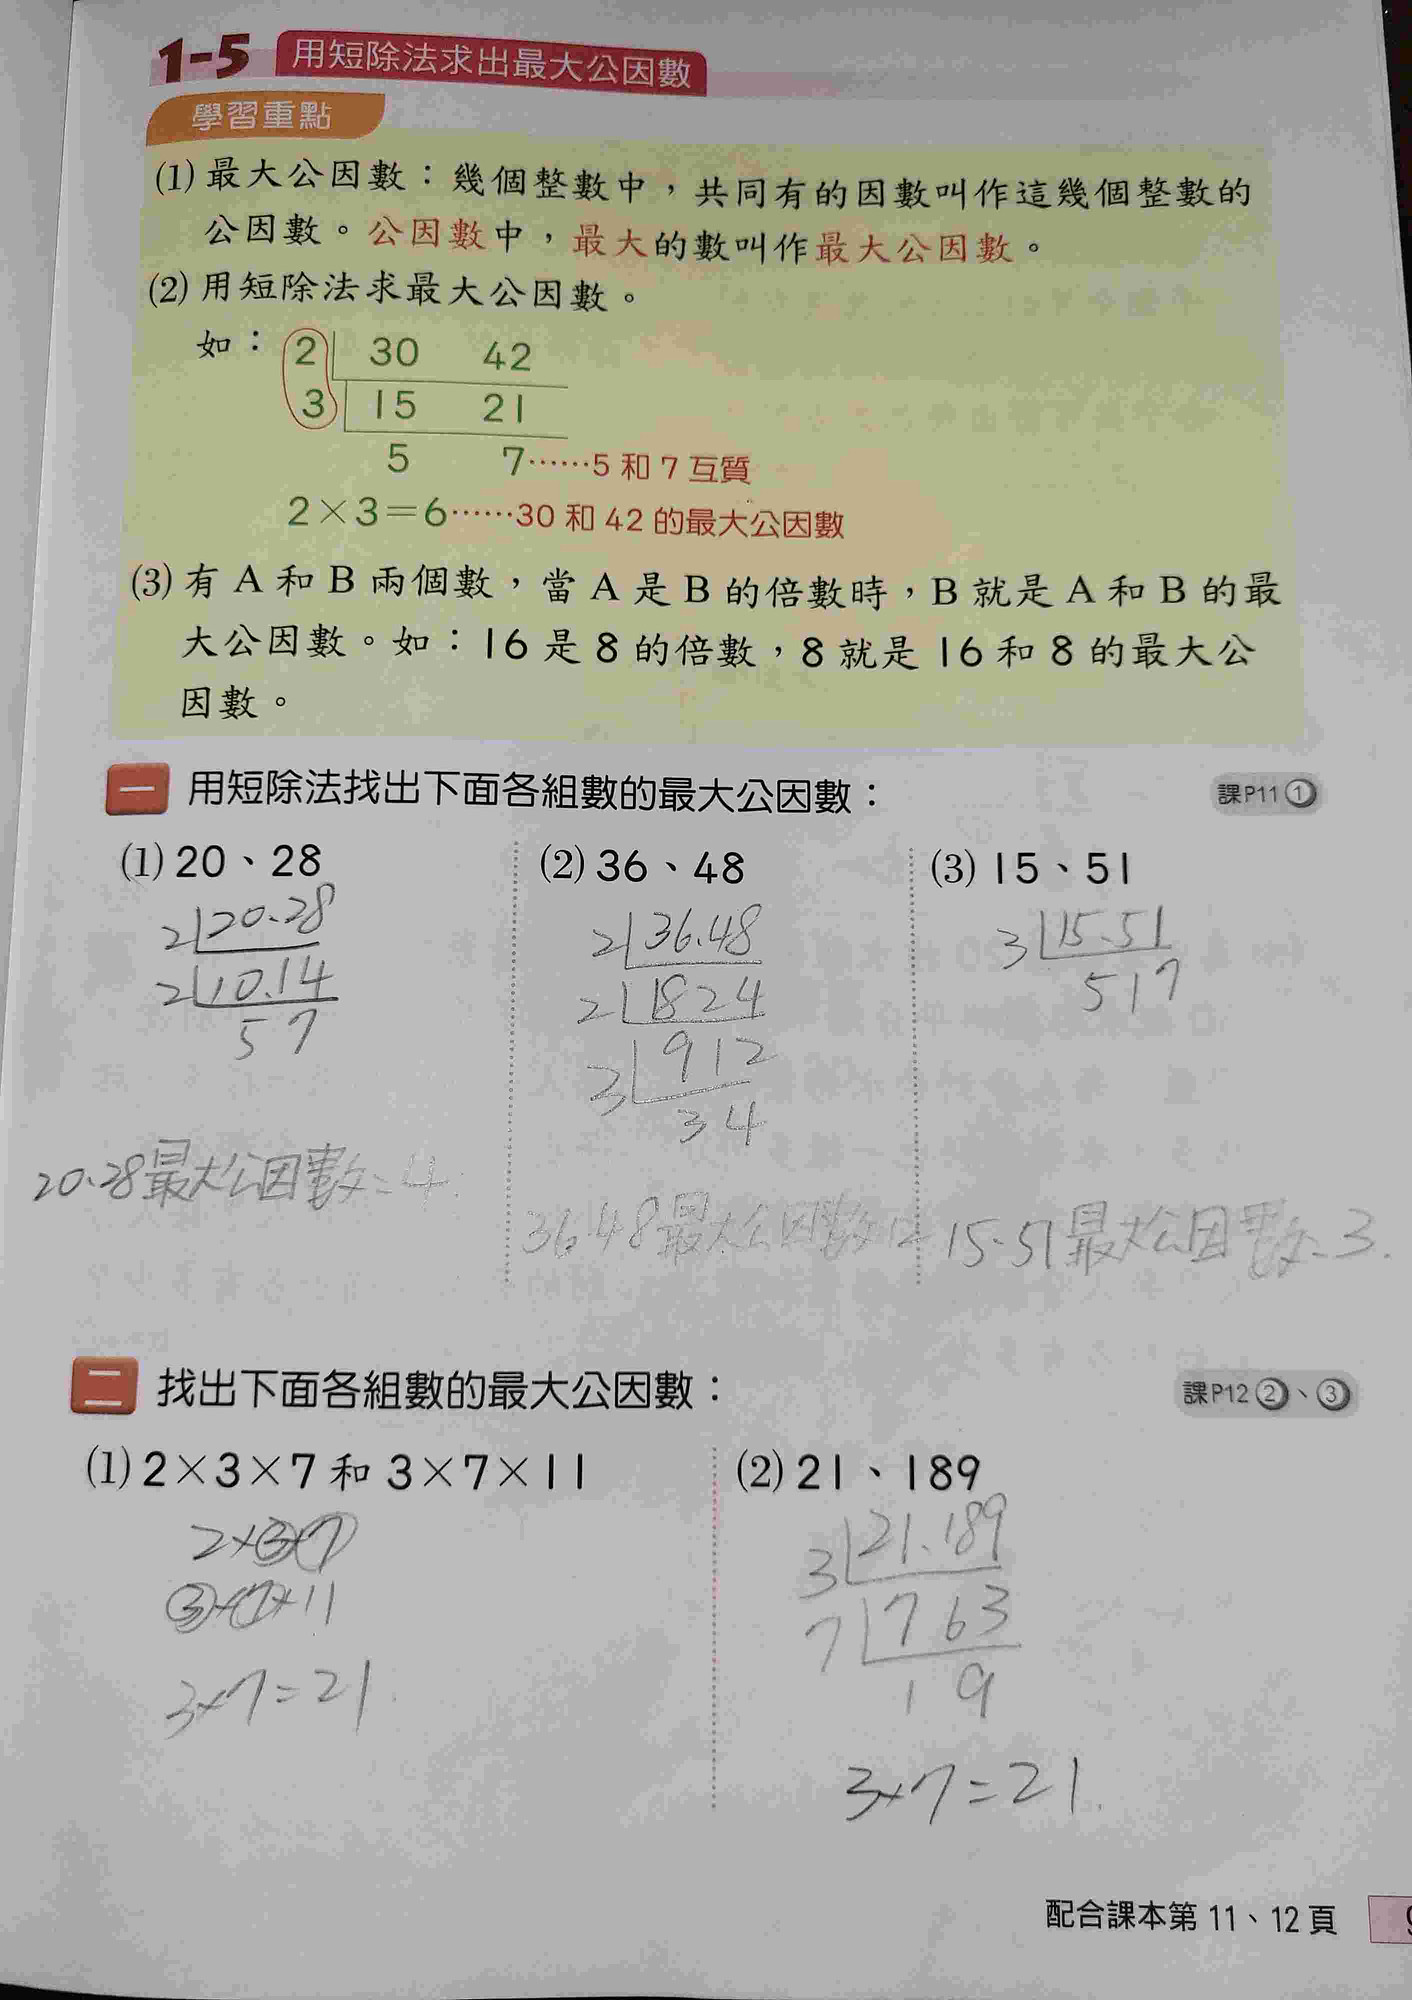 1-5 用短除法求出最大公因數
學習重點
(1) 最大公因數：幾個整數中，共同有的因數叫作這幾個整數的
公因數。公因數中，最大的數叫作最大公因數。
(2) 用短除法求最大公因數。
如： 2 30 42
3 15 21
5 7……5 和 7 互質
2×3=6……30 和 42 的最大公因數
(3) 有 A 和 B 兩個數，當 A 是 B 的倍數時，B 就是 A 和 B 的最
大公因數。如：16 是 8 的倍數，8 就是 16 和 8 的最大公
因數。
一 用短除法找出下面各組數的最大公因數： 課P11①
(1) 20、28
2 20.28
2 10.14
5 7
20.28最大公因數=4.
(2) 36、48
2 36.48
2 18 24
3 9 12
3 4
36.48最大公因數12
(3) 15、51
3 15.51
5 17
15.51最大公因數=3.
二 找出下面各組數的最大公因數： 課P12②、③
(1) 2×3×7 和 3×7×11
2×3×7
3×7×11
3×7=21.
(2) 21、189
3 21.189
7 7 63
1 9
3×7=21.
配合課本第 11、12 頁